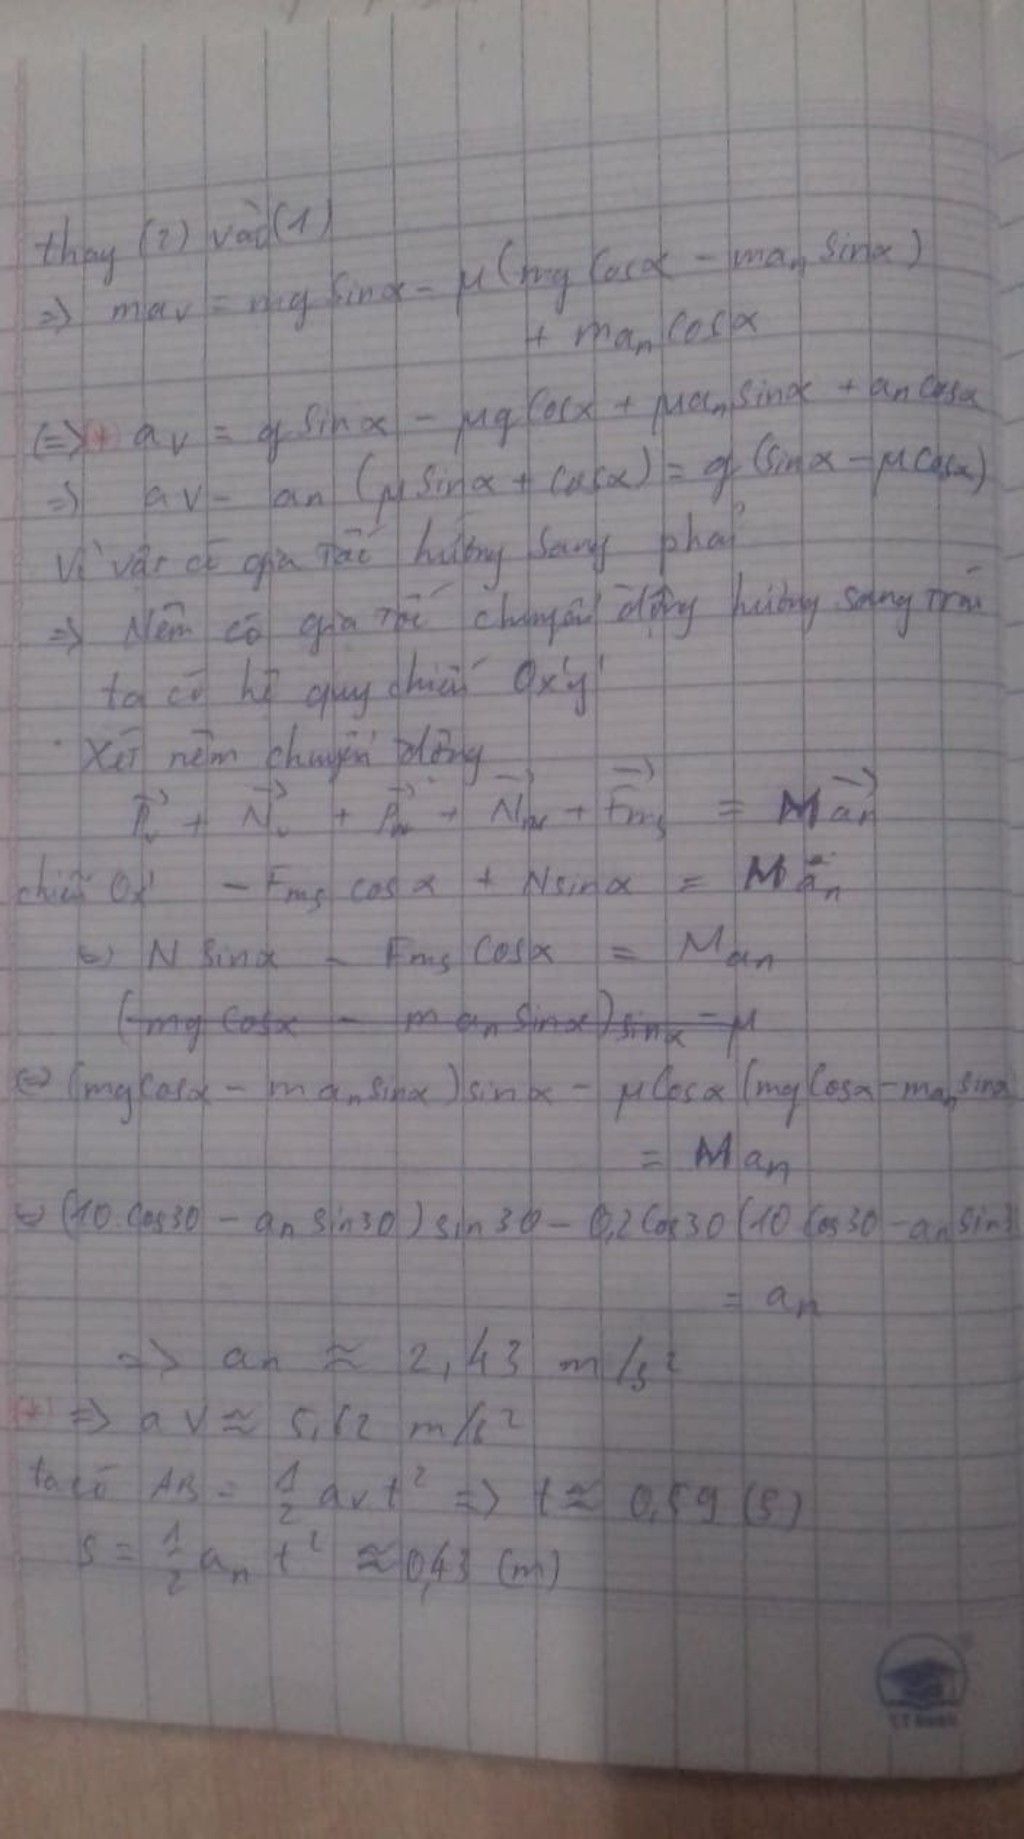 thay (2) vào (1)
=> mav = mg sinα - μ(mg cosα - man sinα)
+ man cosα
(=> + av = g sinα - μg cosα + μan sinα + an cosα
=> av - an (μ sinα + cosα) = g (sinα - μ cosα)
Vì vật có gia tốc hướng sang phải
=> Nêm có gia tốc chuyển động hướng sang trái
ta có hệ quy chiếu Ox'y'
Xét nêm chuyển động
+ N + + + Fms = M an
chiếu Ox' - Fms cosα + N sinα = M an
<=> N sinα - Fms cosα = Man
(mg cosα - m an sinα) sinα - μ
<=> (mg cosα - m an sinα) sinα - μ cosα (mg cosα - man sinα
= M an
<=> (10 cos30 - an sin30) sin30 - 0,2 cos30 (10 cos30 - an sin3
= an
=> an ≈ 2,43 m/s²
=> av ≈ 5,62 m/s²
ta có AB = 1/2 av t² => t ≈ 0,59 (s)
S = 1/2 an t² ≈ 0,43 (m)